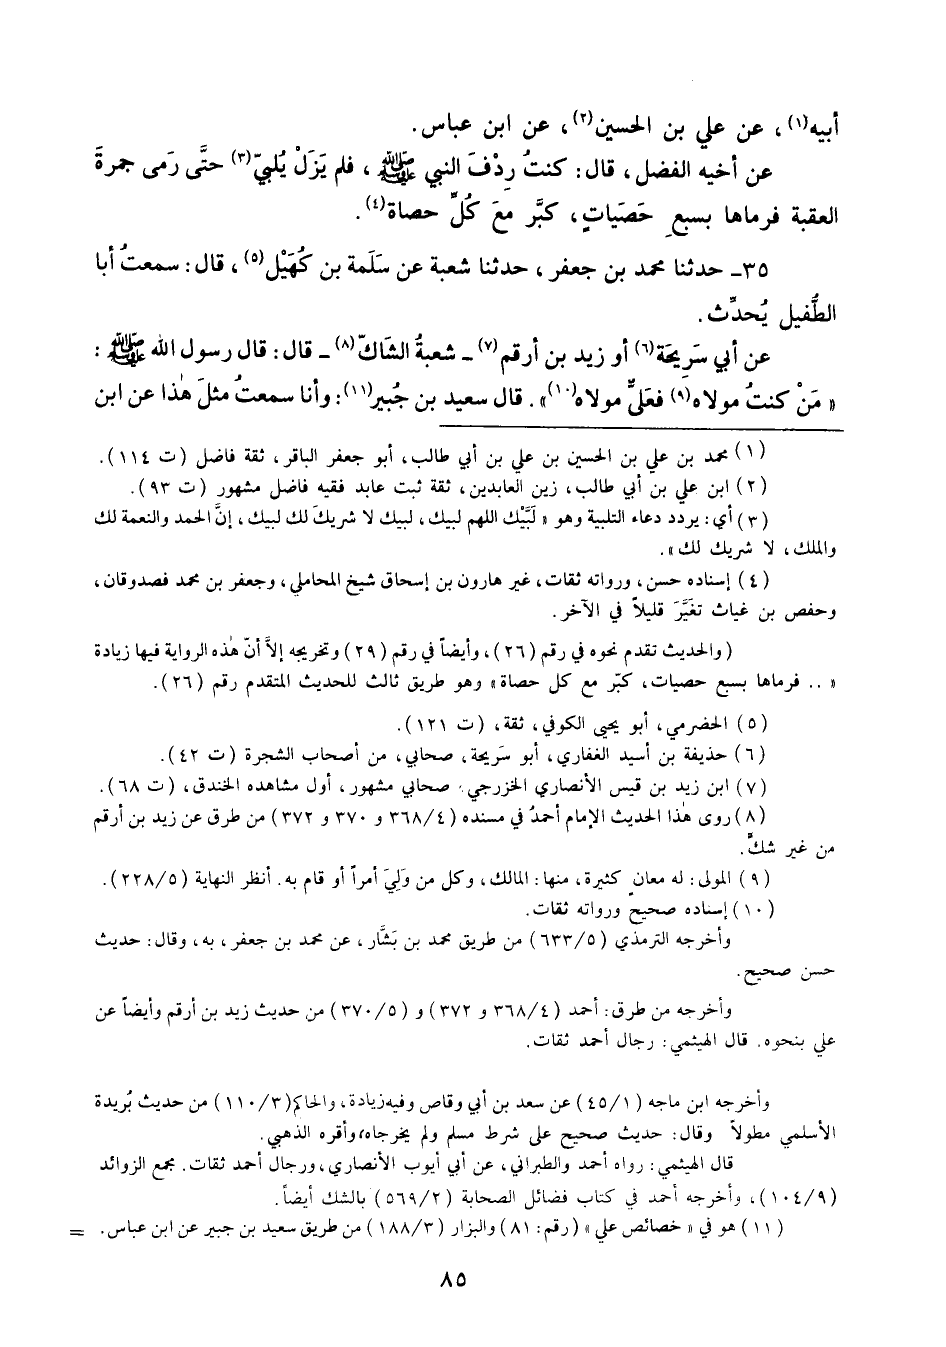 أبيه(١)، عن علي بن الحسين(٢)، عن ابن عباس.
عن أخيه الفضل، قال: كنتُ رِدْفَ النبي ﷺ، فلم يَزَلْ يُلبيّ(٣) حتَّى رَمى جمرةَ
العقبة فرماها بسبعِ حَصَياتٍ، كبَّر معَ كُلِّ حصاة(٤).
٣٥ـ حدثنا محمد بن جعفر، حدثنا شعبة عن سَلَمة بن كُهَيْل(٥)، قال: سمعتُ أبا
الطُّفيل يُحدِّث.
عن أبي سَرِيحَة(٦) أو زيد بن أرقم(٧) ـ شعبةُ الشَاكّ(٨) ـ قال: قال رسول الله ﷺ:
«مَنْ كنتُ مولاه(٩) فعَليٌّ مولاه(١٠)». قال سعيد بن جُبير(١١): وأنا سمعتُ مثلَ هٰذا عن ابن
(١) محمد بن علي بن الحسين بن علي بن أبي طالب، أبو جعفر الباقر، ثقة فاضل (ت ١١٤).
(٢) ابن علي بن أبي طالب، زين العابدين، ثقة ثبت عابد فقيه فاضل مشهور (ت ٩٣).
(٣) أي: يردد دعاء التلبية وهو «لَبَّيْك اللهم لبيك، لبيك لا شريكَ لك لبيك، إنَّ الحمد والنعمة لك
والملك، لا شريك لك».
(٤) إسناده حسن، ورواته ثقات، غير هارون بن إسحاق شيخ المحاملي، وجعفر بن محمد فصدوقان،
وحفص بن غياث تغيَّرَ قليلاً في الآخر.
(والحديث تقدم نحوه في رقم (٢٦)، وأيضاً في رقم (٢٩) وتخريجه إلاَّ أنّ هٰذه الرواية فيها زيادة
«.. فرماها بسبع حصيات، كبّر مع كل حصاة» وهو طريق ثالث للحديث المتقدم رقم (٢٦).
(٥) الحضرمي، أبو يحيى الكوفي، ثقة، (ت ١٢١).
(٦) حذيفة بن أسيد الغفاري، أبو سَريحة، صحابي، من أصحاب الشجرة (ت ٤٢).
(٧) ابن زيد بن قيس الأنصاري الخزرجي، صحابي مشهور، أول مشاهده الخندق، (ت ٦٨).
(٨) روى هٰذا الحديث الإمام أحمدُ في مسنده (٣٦٨/٤ و ٣٧٠ و ٣٧٢) من طرق عن زيد بن أرقم
من غير شكٍّ.
(٩) المولى: له معانٍ كثيرة، منها: المالك، وكل من وَلِيَ أمراً أو قام به. أنظر النهاية (٢٢٨/٥).
(١٠) إسناده صحيح ورواته ثقات.
وأخرجه الترمذي (٦٣٣/٥) من طريق محمد بن بَشَّار، عن محمد بن جعفر، به، وقال: حديث
حسن صحيح.
وأخرجه من طرق: أحمد (٣٦٨/٤ و ٣٧٢) و (٣٧٠/٥) من حديث زيد بن أرقم وأيضاً عن
علي بنحوه. قال الهيثمي: رجال أحمد ثقات.
وأخرجه ابن ماجه (٤٥/١) عن سعد بن أبي وقاص وفيه زيادة، والحاكم (١١٠/٣) من حديث بُريدة
الأسلمي مطولاً وقال: حديث صحيح على شرط مسلم ولم يخرجاه، وأقره الذهبي.
قال الهيثمي: رواه أحمد والطبراني، عن أبي أيوب الأنصاري، ورجال أحمد ثقات. مجمع الزوائد
(١٠٤/٩)، وأخرجه أحمد في كتاب فضائل الصحابة (٥٦٩/٢) بالشك أيضاً.
(١١) هو في «خصائص علي» (رقم: ٨١) والبزار (١٨٨/٣) من طريق سعيد بن جبير عن ابن عباس. =
٨٥